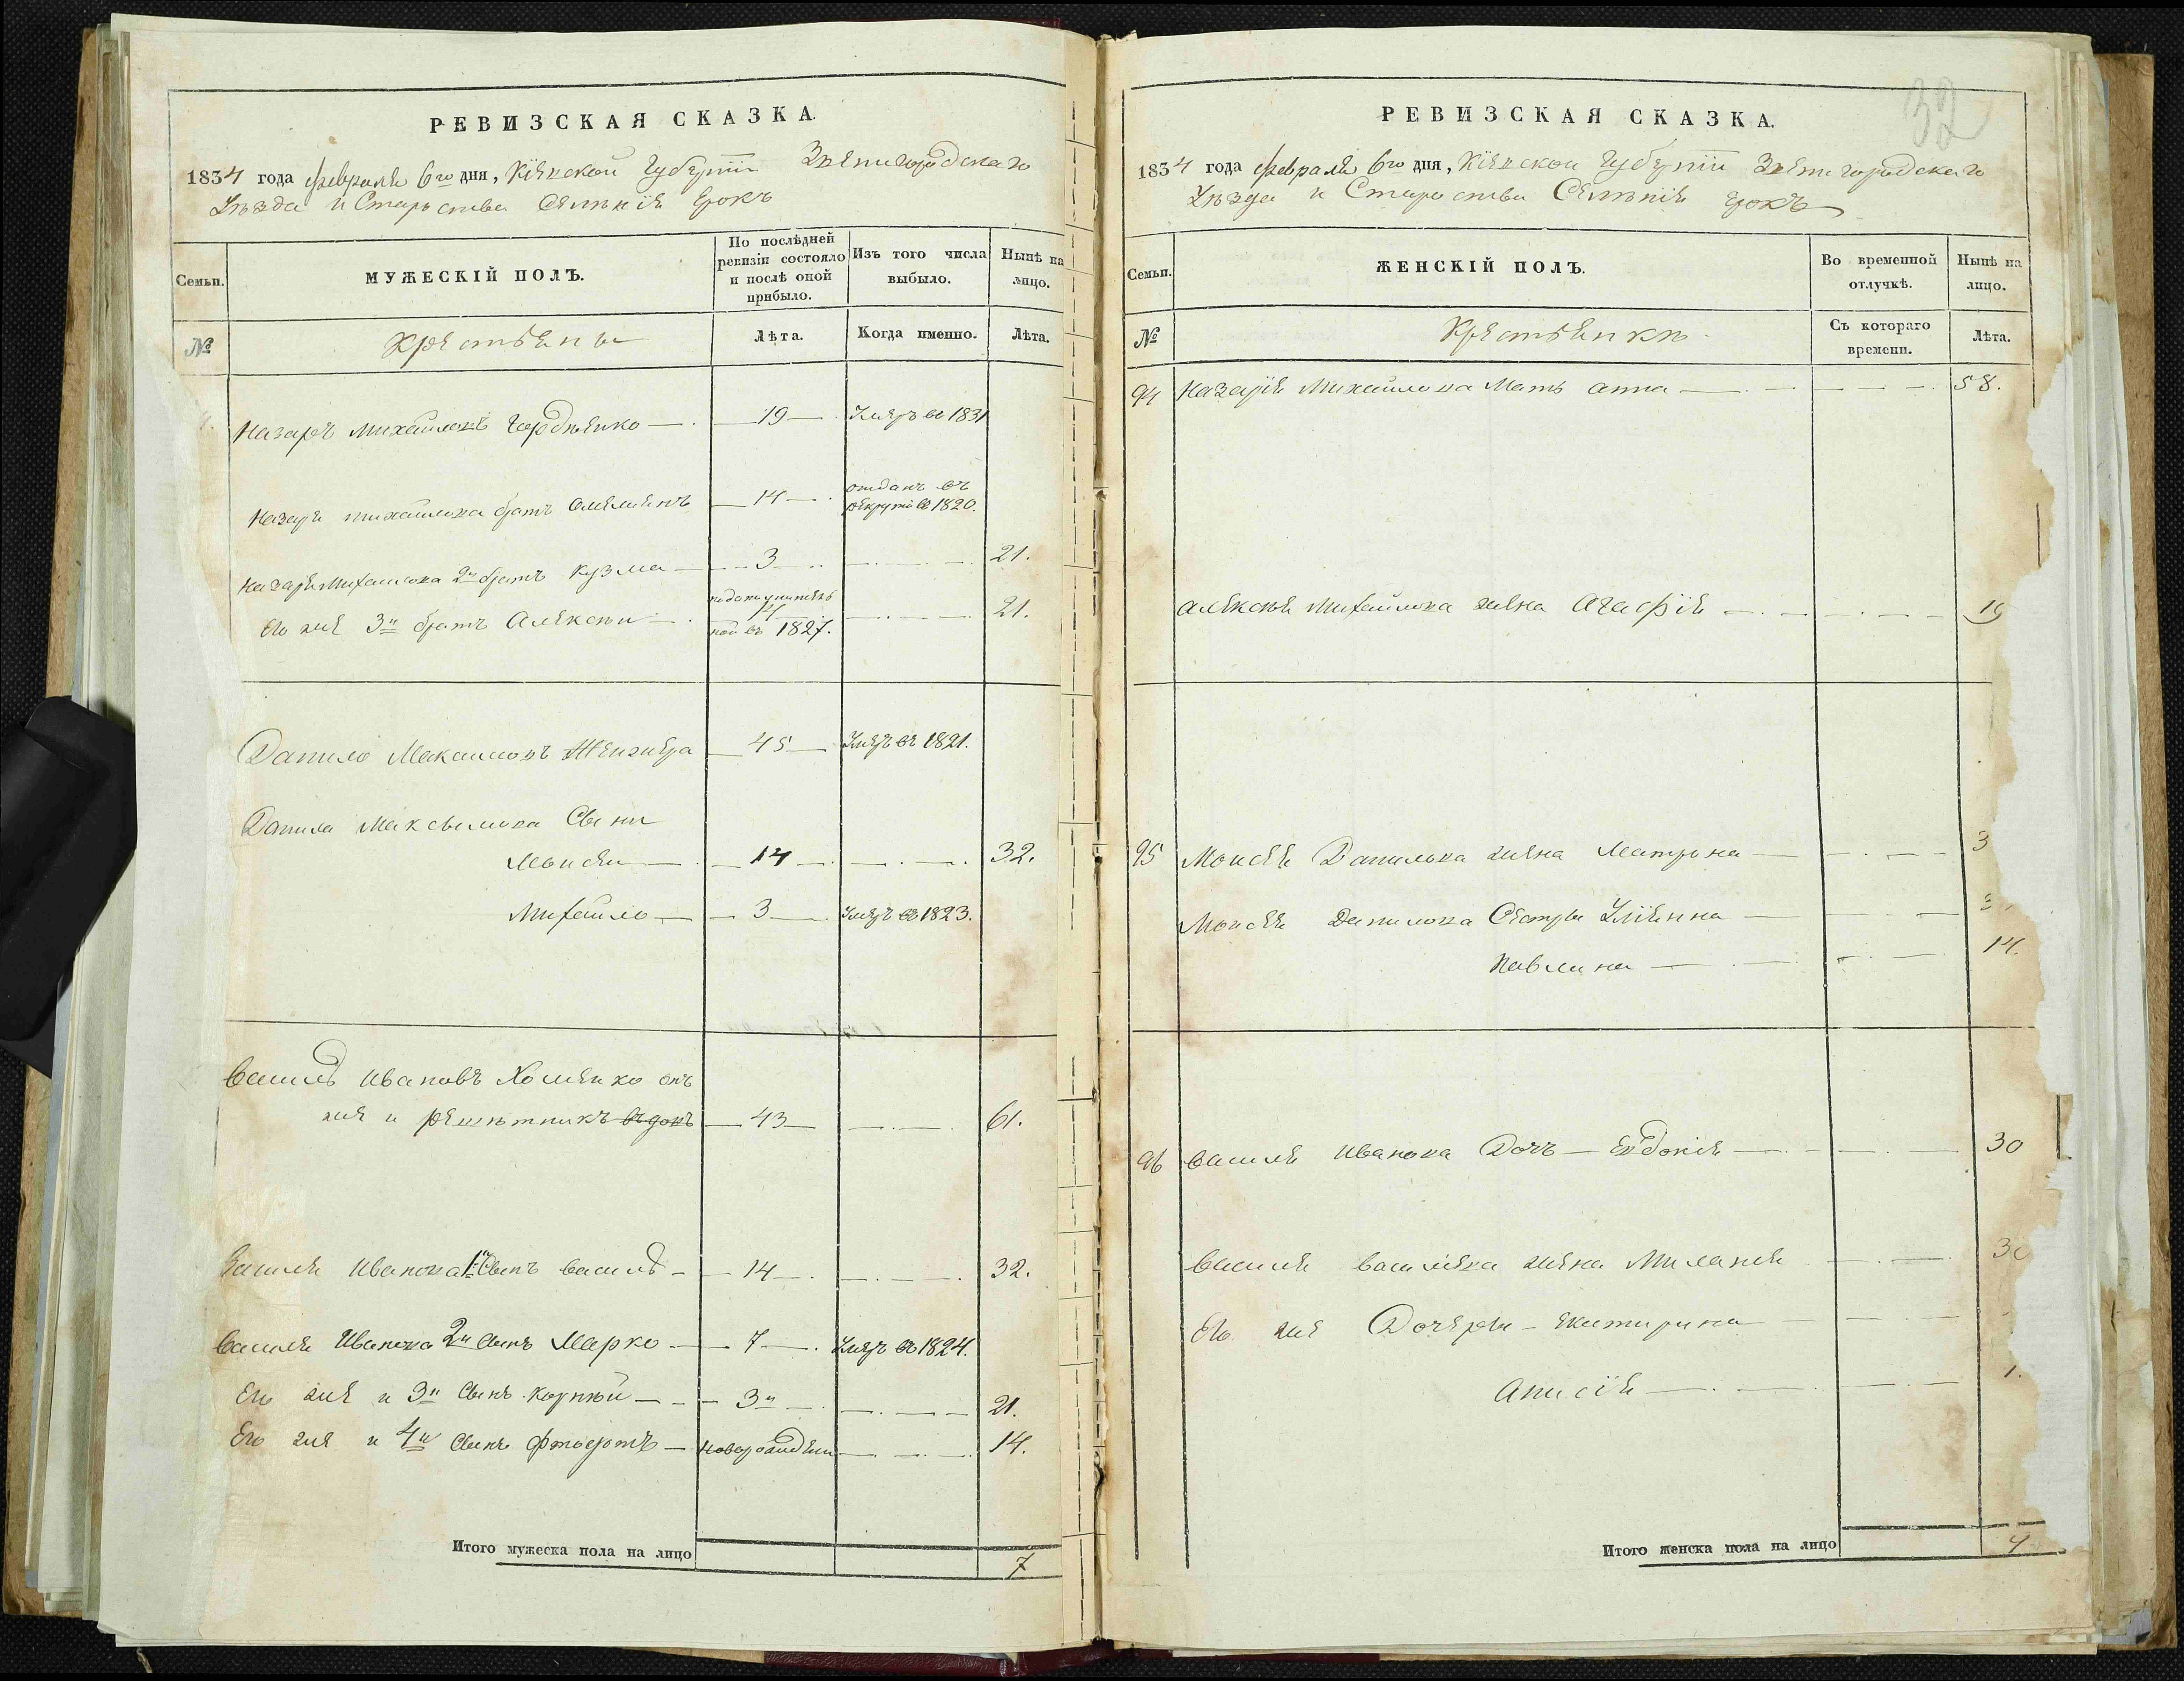 РЕВИЗСКАЯ СКАЗКА.
1834 года февраля 6го дня, Кіевской Губерніи Звенигородскаго
Уѣзда и Староства Селѣнія
Семьи.
МУЖЕСКІЙ ПОЛЪ.
По послѣдней ревизіи состояло и послѣ оной прибыло.
Изъ того числа выбыло.
Нынѣ на лицо.
№
Крестьяне
Лѣта.
Когда именно.
Лѣта.
Назаръ Михайловъ Гордѣенко 19 Умеръ въ 1831
Назарія Михайлова братъ 14 отданъ въ рекруты въ 1820.
Назарія Михайлова 2й братъ Кузма 3 21.
Его же 3й братъ Алексѣй 14 въ 1827. 21.
Данило Максимовъ 45 Умеръ въ 1821.
Данила Максимова Сыны
Моисей 14 32.
Михайло 3 Умеръ въ 1823.
Василь Ивановъ Хоменко онъ
же и Решѣтникъ 43 61.
Василя Иванова 1й Сынъ Василь 14 32.
Василя Иванова 2й Сынъ Марко 7 Умеръ въ 1824.
Его же и 3й Сынъ Корнѣй 3 21.
Его же и 4й Сынъ новорожденъ 14.
Итого мужеска пола на лицо 7
32
РЕВИЗСКАЯ СКАЗКА.
1834 года февраля 6го дня, Кіевской Губерніи Звенигородскаго
Уѣзда и Староства Селѣнія
Семьи.
ЖЕНСКІЙ ПОЛЪ.
Во временной отлучкѣ.
Нынѣ на лицо.
№
Крестьянки
Съ котораго времени.
Лѣта.
94 Назарія Михайлова Мать Анна 58.
Алексѣя Михайлова жена Агафія 19
95 Моисея Данилова жена Матрона 3
Моисея Данилова Сестры Уліянна 3
Павлина 14.
96 Василя Иванова Дочь Евдокія 30
Василя Василева жена Миланія 30
Его же Дочери Екатирина
Анисія 1.
Итого женска пола на лицо